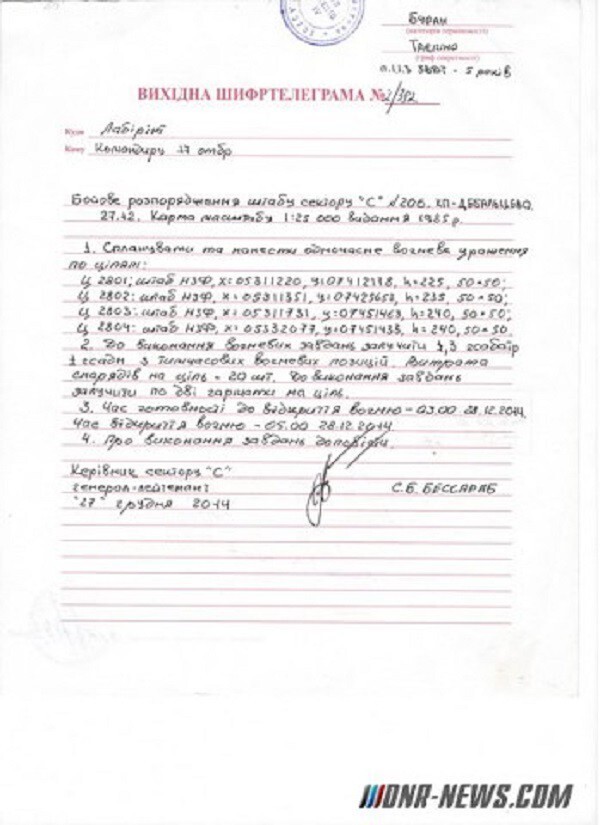 Буран
(категорія терміновості)
Таємно
(гриф секретності)
п.1.1.3 - 5 років
ВИХІДНА ШИФРТЕЛЕГРАМА № 2/392
Куди Лабіринт
Кому Командиру 17 отбр
Бойове розпорядження штабу сектору "С" №206. КП-ДЕБАЛЬЦЕВО.
27.12. Карта масштабу 1:25 000 видання 1985 р.
1. Спланувати та нанести одночасне вогневе ураження
по цілям:
Ц 2801: штаб НЗФ, х=05311220, у=07412198, h=225, 50*50;
Ц 2802: штаб НЗФ, х=05311351, у=07425653, h=235, 50*50;
Ц 2803: штаб НЗФ, х=05311731, у=07451463, h=240, 50*50;
Ц 2804: штаб НЗФ, х=05332077, у=07451433, h=240, 50*50.
2. До виконання вогневих завдань залучити 1,3 гсабатр
1 гсадн з тимчасових вогневих позицій. Витрата
снарядів на ціль = 20 шт. До виконання завдань
залучити по дві гармати на ціль.
3. Час готовності до відкриття вогню - 03.00 28.12.2014,
Час відкриття вогню - 05.00 28.12.2014.
4. Про виконання завдань доповісти.
Керівник сектору "С"
генерал-лейтенант С.Б. БЕССАРАБ
"27" грудня 2014
DNR-NEWS.COM